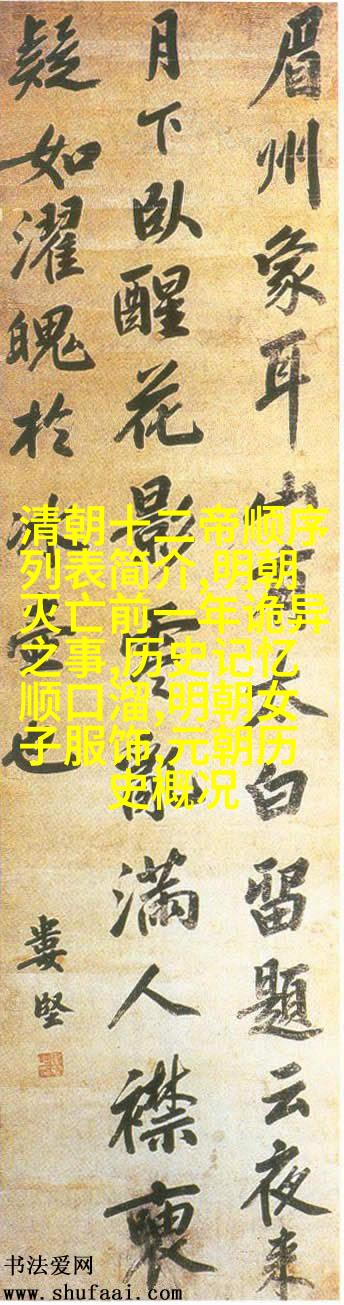 眉州象耳山有太白留題云夜来
月下臥醒花影零亂滿人襟
疑如濯魄於冰壺也
婁堅
清朝十二帝顺序
列表简介,明朝
灭亡前一年诡异
之事,历史记忆
顺口溜,明朝女
子服饰,元朝历
史概况
书法爱网
www.shufaai.com